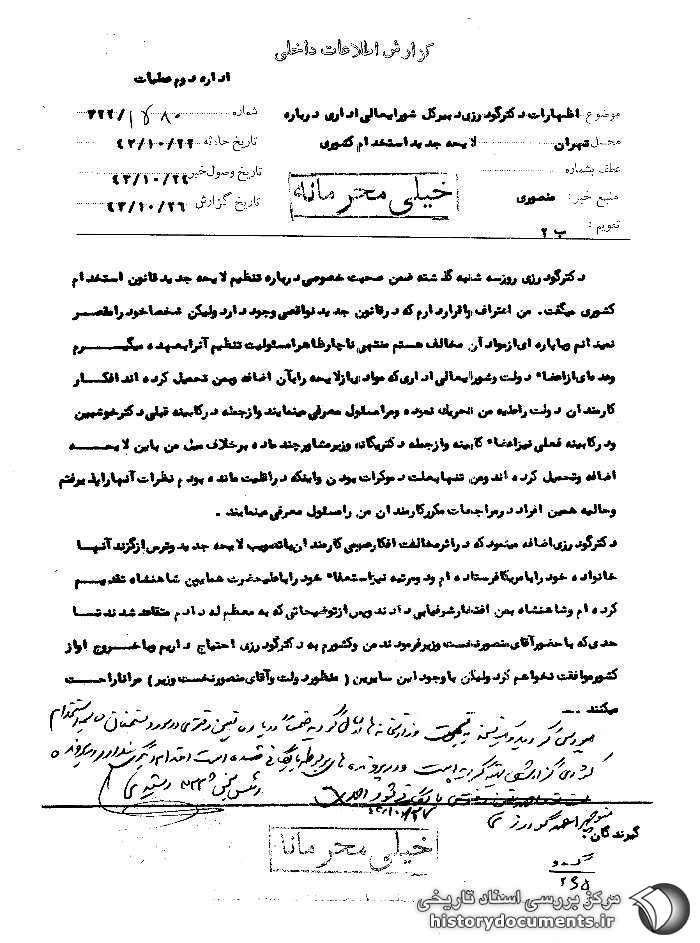 گزارش اطلاعات داخلی
اداره دوم عملیات
موضوع: اظهارات دکترگودرزی دبیرکل شورایعالی اداری درباره شماره ۳۲۲/۱۷۸۰
محل تهران لایحه جدید استخدام کشوری تاریخ حادثه ۴۳/۱۰/۲۲
عطف بشماره تاریخ وصول خبر ۴۳/۱۰/۲۴
منبع خبر: منصوری خیلی محرمانه تاریخ گزارش ۴۳/۱۰/۲۶
تقویم: ب ۲
دکترگودرزی روزسه شنبه گذشته ضمن صحبت خصوصی درباره تنظیم لایحه جدید قانون استخدام
کشوری میگفت. من اعتراف واقراردارم که درقانون جدید نواقصی وجود دارد ولیکن شخصا خود را مقصر
نمیدانم وباپاره ای ازمواد آن مخالف هستم منتهی ناچار ظاهرا مسئولیت تنظیم آنرابعهده میگیرم
وعده ای ازاعضاء دولت وشورایعالی اداری که موادی ازلایحه رابآن اضافه وبمن تحمیل کرده اند افکار
کارمندان دولت راعلیه من تحریک نموده ومرامسئول معرفی مینمایند وازجمله درکابینه قبلی دکترخوشبین
ودرکابینه فعلی نیزاعضاء کابینه وازجمله دکتریگانه وزیرمشاور چند ماده برخلاف میل من باین لایحه
اضافه وتحمیل کرده اند ومن تنها بعلت دموکرات بودن واینکه دراقلیت مانده بودم نظرات آنهارا پذیرفتم
وحالیه همین افراد درمراجعات مکرر کارمندان من رامسئول معرفی مینمایند.
دکترگودرزی اضافه مینمود که دراثرمخالفت افکارعمومی کارمندان باتصویب لایحه جدید وترس ازگزند آنها
خانواده خود رابامریکا فرستاده ام ودومرتبه نیز استعفاء خود راباعلیحضرت همایون شاهنشاه تقدیم
کرده ام وشاهنشاه بمن افتخارشرفیابی دادند وپس ازتوضیحاتی که به معظم له دادم متقاعد شدند تا
حدی که باحضورآقای منصورنخست وزیرفرمودند من وکشورم به دکترگودرزی احتیاج داریم وباخروج اواز
کشورموافقت نخواهم کرد ولیکن باوجود این سایرین (منظوردولت وآقای منصورنخست وزیر) مراناراحت
میکنند.
گیرندگان:
منوچهر گودرزی
۴۳/۱۰/۲۷
خیلی محرمانه
مرکز بررسی اسناد تاریخی
historydocuments.ir